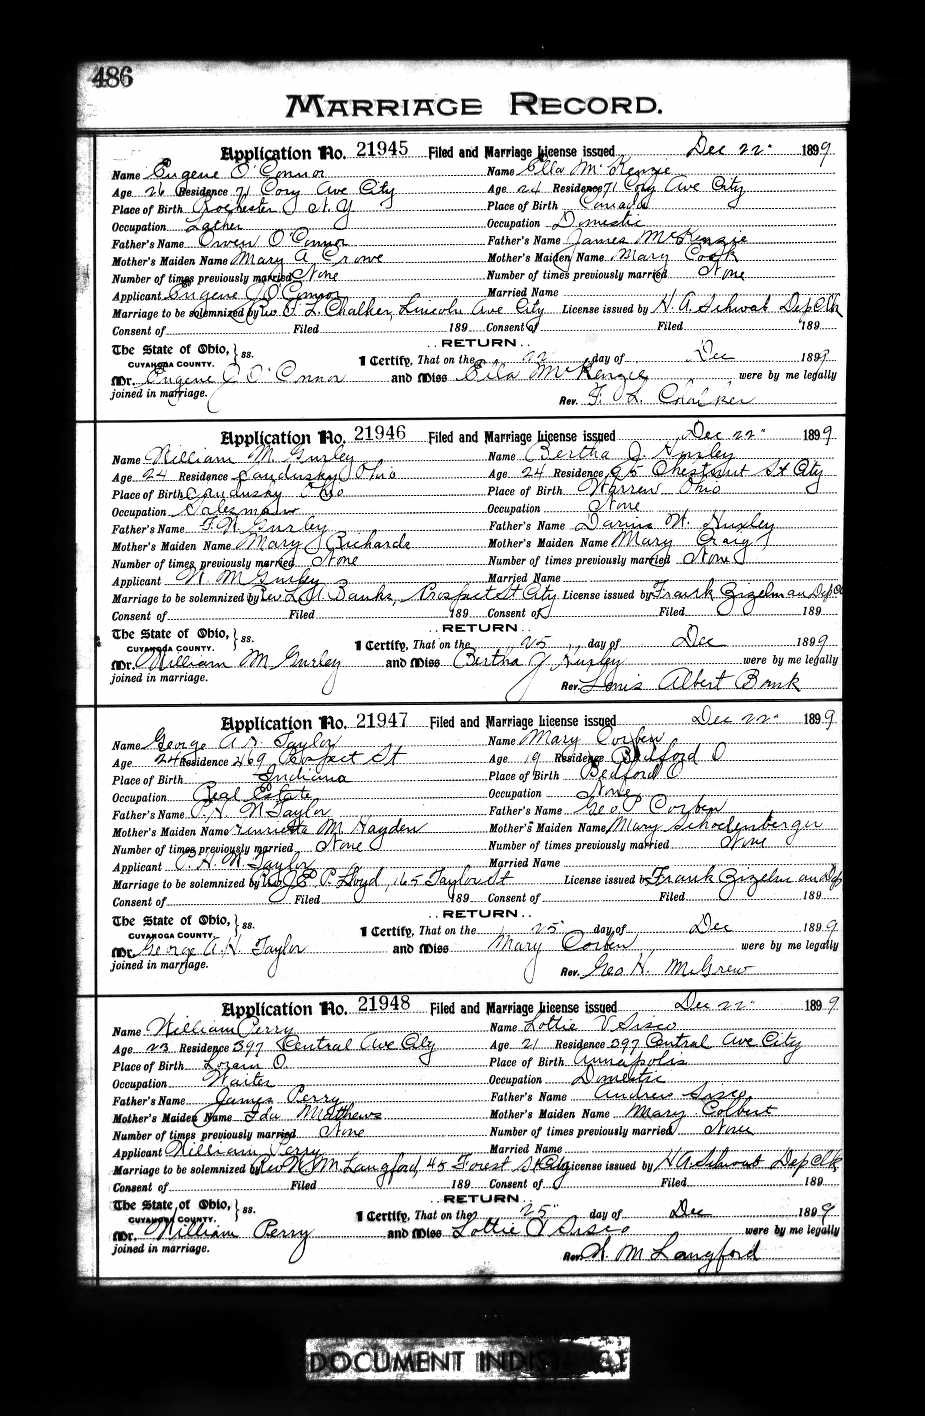 486
MARRIAGE RECORD.
Application No. 21945 Filed and Marriage License issued Dec 22" 1899
Name Eugene O'Connor Name Ella McKenzie
Age 26 Residence 71 Cory Ave City Age 24 Residence 71 Cory Ave City
Place of Birth Rochester N.Y Place of Birth Canada
Occupation Lather Occupation Domestic
Father's Name Owen O'Connor Father's Name James McKenzie
Mother's Maiden Name Mary A Crowe Mother's Maiden Name Mary Cook
Number of times previously married None Number of times previously married None
Applicant Eugene J O'Connor Married Name
Marriage to be solemnized by Rev. F. L. Chalker, Lincoln Ave City License issued by H A Schwab Dep Clk
Consent of Filed 189 Consent of Filed 189
RETURN
The State of Ohio, } ss.
CUYAHOGA COUNTY. I Certify, That on the 22 day of Dec 1899
Mr. Eugene J O'Connor and Miss Ella McKenzie were by me legally
joined in marriage. Rev. F. L. Chalker
Application No. 21946 Filed and Marriage License issued Dec 22" 1899
Name William M. Gurley Name Bertha J. Huxley
Age 24 Residence Sandusky Ohio Age 24 Residence 95 Chestnut St City
Place of Birth Sandusky Ohio Place of Birth Warren Ohio
Occupation Salesman Occupation None
Father's Name F. W. Gurley Father's Name Darius W. Huxley
Mother's Maiden Name Mary J Richards Mother's Maiden Name Mary Craig
Number of times previously married None Number of times previously married None
Applicant W M Gurley Married Name
Marriage to be solemnized by Rev L. A. Banks, Prospect St City License issued by Frank Zizelman Dep Cl
Consent of Filed 189 Consent of Filed 189
RETURN
The State of Ohio, } ss.
CUYAHOGA COUNTY. I Certify, That on the 25 day of Dec 1899
Mr. William M Gurley and Miss Bertha J Huxley were by me legally
joined in marriage. Rev. Louis Albert Bank
Application No. 21947 Filed and Marriage License issued Dec 22" 1899
Name George A. Taylor Name Mary Corben
Age 24 Residence 469 Prospect St Age 19 Residence Bedford O
Place of Birth Indiana Place of Birth Bedford O
Occupation Real Estate Occupation None
Father's Name P. H. N Taylor Father's Name Geo. P Corben
Mother's Maiden Name Henrietta M. Hayden Mother's Maiden Name Mary Schoelenberger
Number of times previously married None Number of times previously married None
Applicant H. N. Taylor Married Name
Marriage to be solemnized by Rev J. E P. Lloyd, 165 Taylor St License issued by Frank Zizelman Dep
Consent of Filed 189 Consent of Filed 189
RETURN
The State of Ohio, } ss.
CUYAHOGA COUNTY. I Certify, That on the 25" day of Dec 1899
Mr. George A. H. Taylor and Miss Mary Corben were by me legally
joined in marriage. Rev. Geo H. McGrew
Application No. 21948 Filed and Marriage License issued Dec 22" 1899
Name William Perry Name Lottie V Sisco
Age 23 Residence 397 Central Ave City Age 21 Residence 397 Central Ave City
Place of Birth Lorain O. Place of Birth Annapolis
Occupation Waiter Occupation Domestic
Father's Name James Perry Father's Name Andrew Sisco
Mother's Maiden Name Ida Matthews Mother's Maiden Name Mary Colbert
Number of times previously married None Number of times previously married None
Applicant William Perry Married Name
Marriage to be solemnized by Rev W. M. Langford, 45 Forest St City License issued by H A Schwab Dep Clk
Consent of Filed 189 Consent of Filed 189
RETURN
The State of Ohio, } ss.
CUYAHOGA COUNTY. I Certify, That on the 25" day of Dec 1899
Mr. William Perry and Miss Lottie V Sisco were by me legally
joined in marriage. Rev. W. M Langford
DOCUMENT